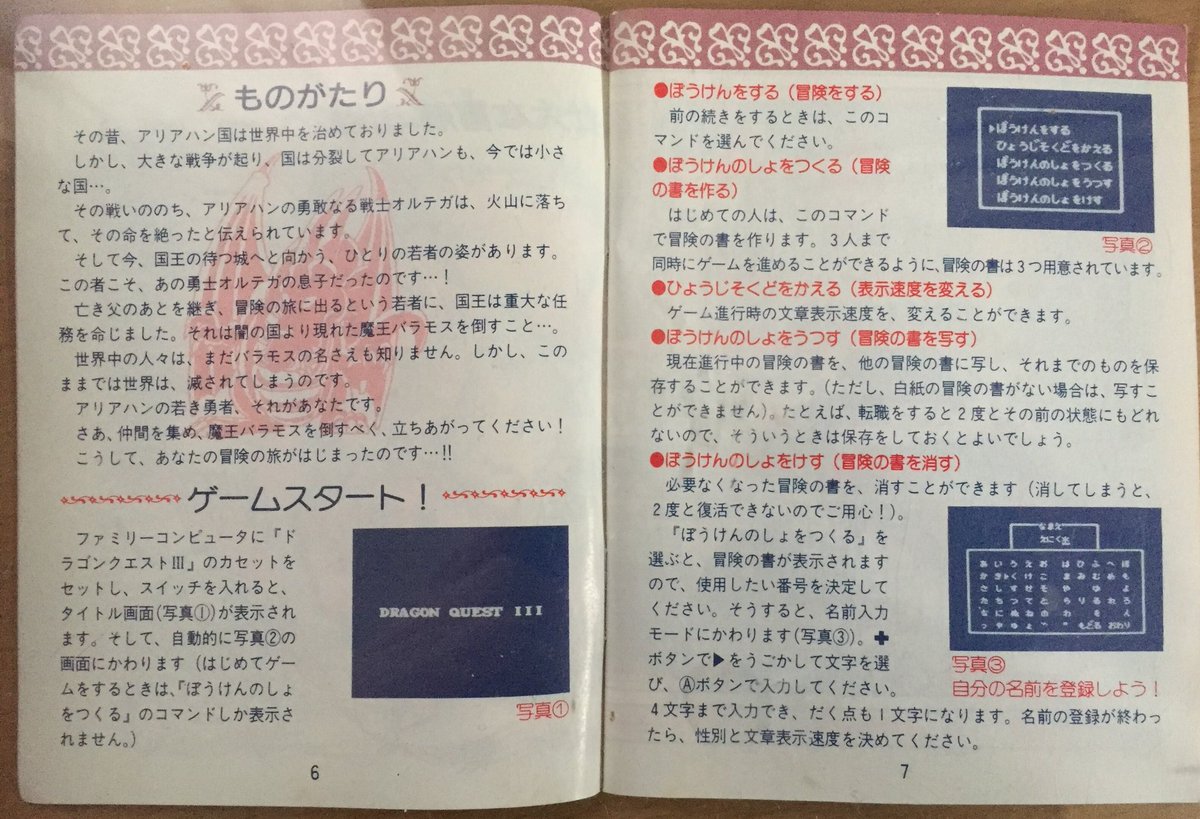 ものがたり
その昔、アリアハン国は世界中を治めておりました。
しかし、大きな戦争が起り、国は分裂してアリアハンも、今では小さ
な国…。
その戦いののち、アリアハンの勇敢なる戦士オルテガは、火山に落ち
て、その命を絶ったと伝えられています。
そして今、国王の待つ城へと向かう、ひとりの若者の姿があります。
この者こそ、あの勇士オルテガの息子だったのです…！
亡き父のあとを継ぎ、冒険の旅に出るという若者に、国王は重大な任
務を命じました。それは闇の国より現れた魔王バラモスを倒すこと…。
世界中の人々は、まだバラモスの名さえも知りません。しかし、この
ままでは世界は、滅されてしまうのです。
アリアハンの若き勇者、それがあなたです。
さあ、仲間を集め、魔王バラモスを倒すべく、立ちあがってください！
こうして、あなたの冒険の旅がはじまったのです…!!
ゲームスタート！
ファミリーコンピュータに『ド
ラゴンクエストⅢ』のカセットを
セットし、スイッチを入れると、
タイトル画面(写真①)が表示され
ます。そして、自動的に写真②の
画面にかわります（はじめてゲー
ムをするときは、『ぼうけんのしょ
をつくる』のコマンドしか表示さ
れません。）
DRAGON QUEST III
写真①
6
●ぼうけんをする（冒険をする）
前の続きをするときは、このコ
マンドを選んでください。
●ぼうけんのしょをつくる（冒険
の書を作る）
はじめての人は、このコマンド
で冒険の書を作ります。3人まで
同時にゲームを進めることができるように、冒険の書は3つ用意されています。
●ひょうじそくどをかえる（表示速度を変える）
ゲーム進行時の文章表示速度を、変えることができます。
●ぼうけんのしょをうつす（冒険の書を写す）
現在進行中の冒険の書を、他の冒険の書に写し、それまでのものを保
存することができます。（ただし、白紙の冒険の書がない場合は、写すこ
とができません）。たとえば、転職をすると2度とその前の状態にもどれ
ないので、そういうときは保存をしておくとよいでしょう。
●ぼうけんのしょをけす（冒険の書を消す）
必要なくなった冒険の書を、消すことができます（消してしまうと、
2度と復活できないのでご用心！）。
『ぼうけんのしょをつくる』を
選ぶと、冒険の書が表示されます
ので、使用したい番号を決定して
ください。そうすると、名前入力
モードにかわります(写真③)。✚
ボタンで▶をうごかして文字を選
び、Ⓐボタンで入力してください。
4文字まで入力でき、だく点も1文字になります。名前の登録が終わっ
たら、性別と文章表示速度を決めてください。
▶ぼうけんをする
ひょうじそくどをかえる
ぼうけんのしょをつくる
ぼうけんのしょをうつす
ぼうけんのしょをけす
写真②
なまえ
えにくす
あいうえお はひふへほ
かきくけこ まみむめも
さしすせそ や ゆ よ
たちつてと らりるれろ
なにぬねの わ を ん
っゃゅょ もどる おわり
写真③
自分の名前を登録しよう！
7